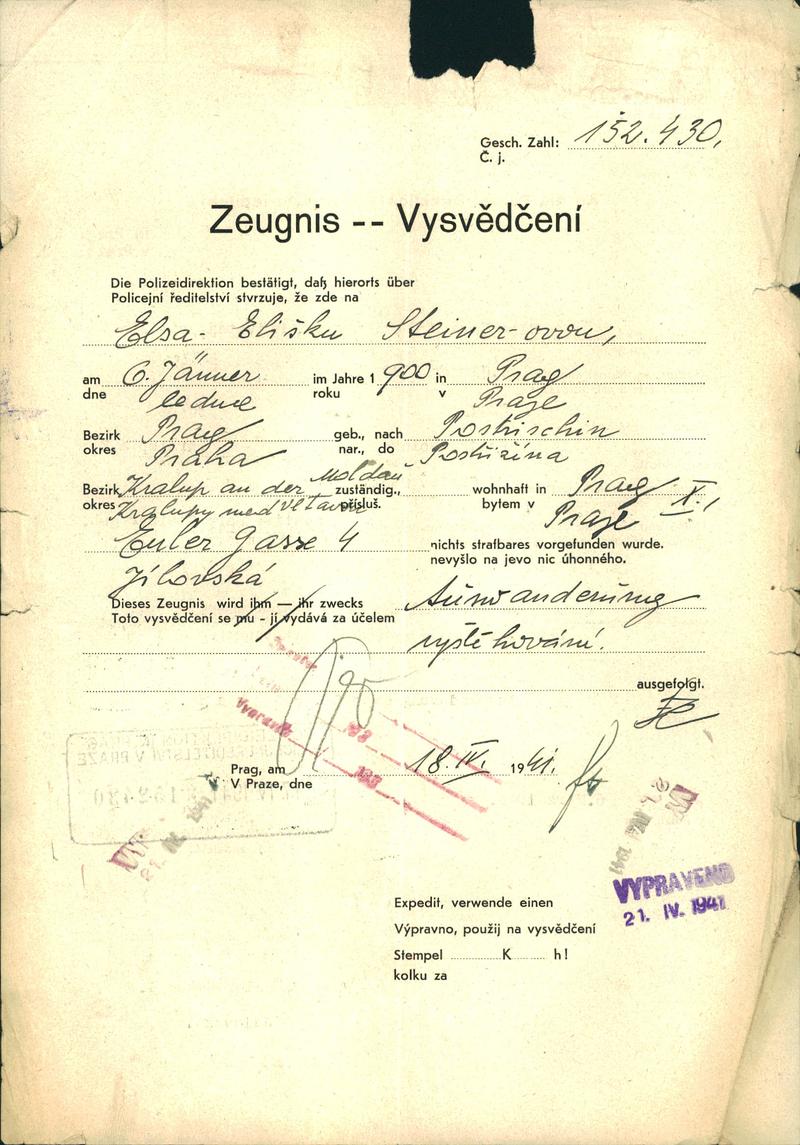 Gesch. Zahl: 152.430,
Č. j.
Zeugnis -- Vysvědčení
Die Polizeidirektion bestätigt, daß hierorts über
Policejní ředitelství stvrzuje, že zde na
Elsa- Elišku Steiner-ovou,
am 6. Jänner im Jahre 1900 in Prag
dne ledna roku v Praze
Bezirk Prag geb., nach Postřischin
okres Praha nar., do Postřižína
Bezirk Kralup an der Moldau zuständig., wohnhaft in Prag X.,
okres Kralupy nad Vltavou přísluš. bytem v Praze
Euler Gasse 4 nichts strafbares vorgefunden wurde.
Jílovská nevyšlo na jevo nic úhonného.
Dieses Zeugnis wird ihm — ihr zwecks Auswanderung
Toto vysvědčení se mu - jí vydává za účelem
vystěhování.
ausgefolgt.
Prag, am 18. IV. 1941.
V Praze, dne
VYPRAVENO
21. IV. 1941
Expedit, verwende einen
Výpravno, použij na vysvědčení
Stempel K h!
kolku za